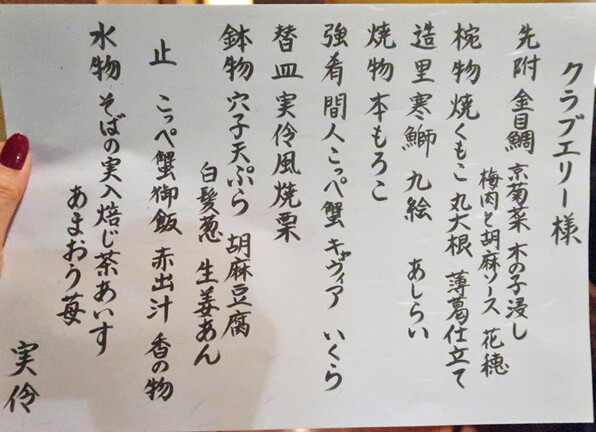 クラブエリー様
先附 金目鯛 京菊菜 木の子浸し
梅肉と胡麻ソース 花穂
椀物 焼くもこ 丸大根 薄葛仕立て
造里 寒鰤 九絵 あしらい
焼物 本もろこ
強肴 間人こっぺ蟹 キャヴィア いくら
替皿 実伶風焼栗
鉢物 穴子天ぷら 胡麻豆腐
白髪葱 生姜あん
止 こっぺ蟹御飯 赤出汁 香の物
水物 そばの実入焙じ茶あいす
あまおう苺
実伶